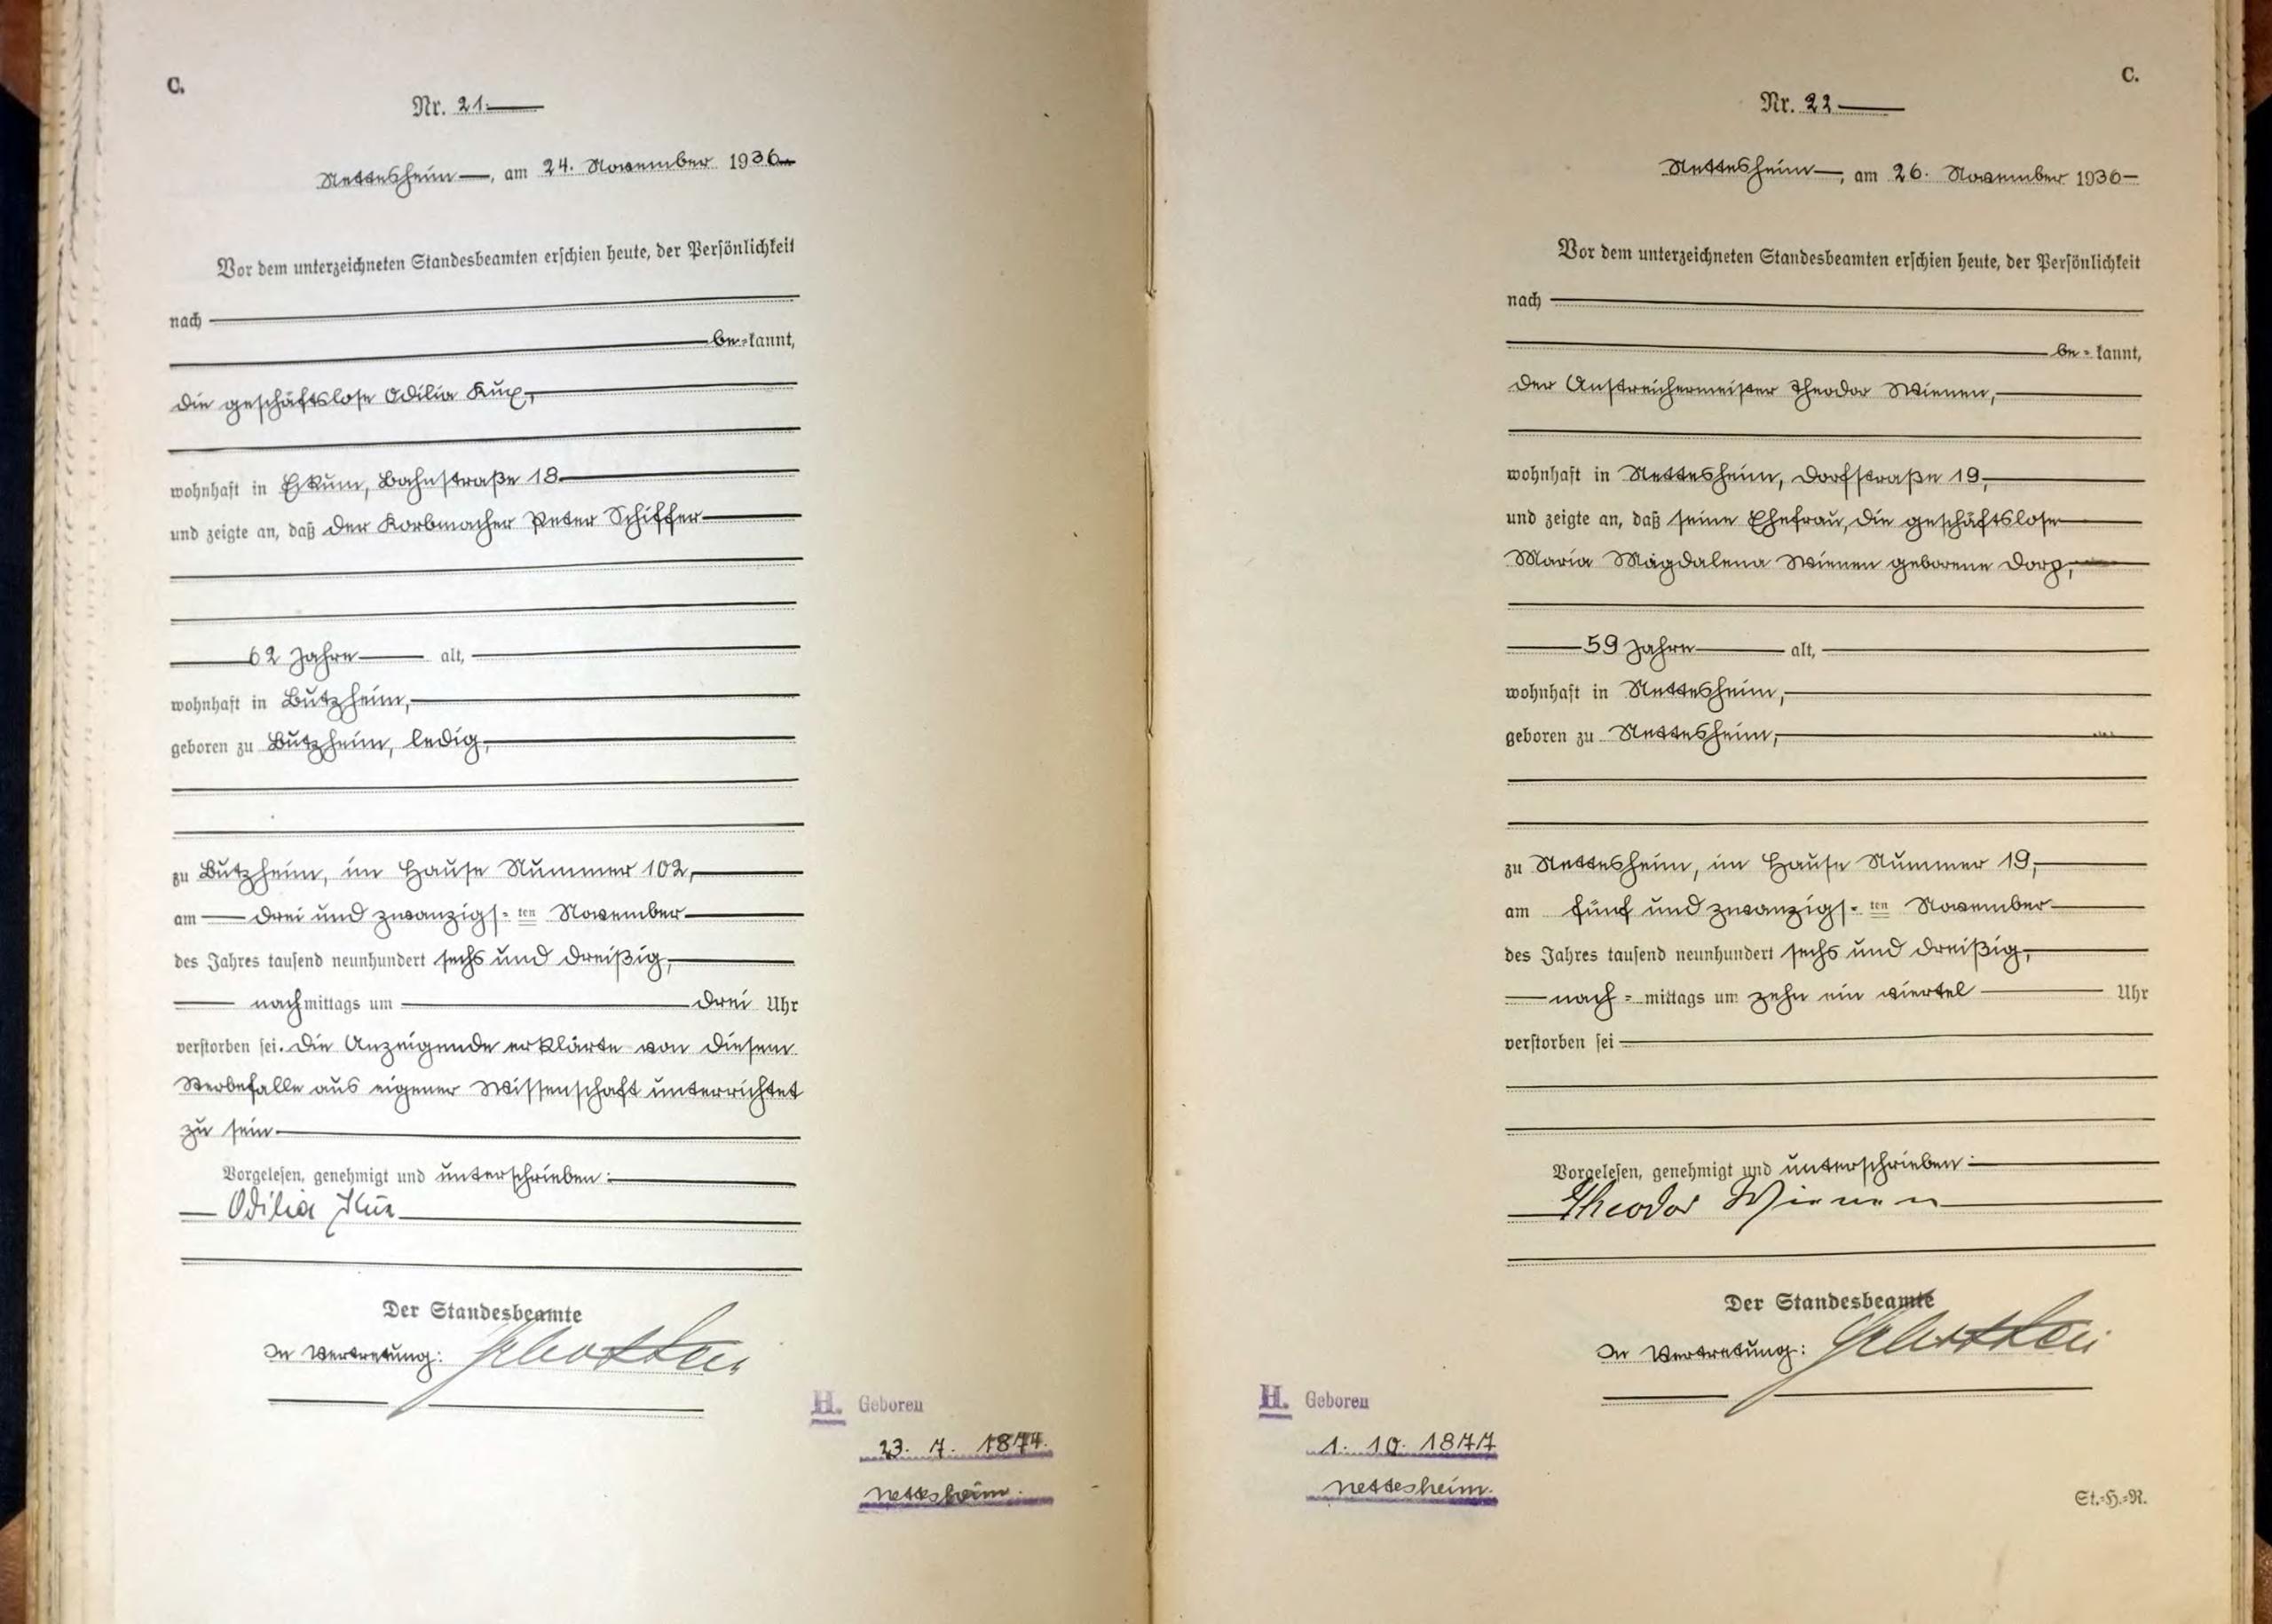 C.
Nr. 21.
Nettesheim, am 24. November 1936
Vor dem unterzeichneten Standesbeamten erschien heute, der Persönlichkeit
nach
be-kannt,
die geschäftslose Odilia Kux,
wohnhaft in Eckum, Bahnstraße 18.
und zeigte an, daß der Korbmacher Peter Schiffer
62 Jahre alt,
wohnhaft in Butzheim,
geboren zu Butzheim, ledig,
zu Butzheim, im Hause Nummer 102,
am drei und zwanzigs-ten November
des Jahres tausend neunhundert sechs und dreißig,
nachmittags um drei Uhr
verstorben sei. Die Anzeigende erklärte von diesem
Sterbefalle aus eigener Wissenschaft unterrichtet
zu sein
Vorgelesen, genehmigt und unterschrieben:
Odilia Kux
Der Standesbeamte
In Vertretung:
H. Geboren
23. 7. 1874.
Nettesheim.
C.
Nr. 22
Nettesheim, am 26. November 1936
Vor dem unterzeichneten Standesbeamten erschien heute, der Persönlichkeit
nach
be-kannt,
der Anstreichermeister Theodor Wienen,
wohnhaft in Nettesheim, Dorfstraße 19,
und zeigte an, daß seine Ehefrau, die geschäftslose
Maria Magdalena Wienen geborene Dorp,
59 Jahre alt,
wohnhaft in Nettesheim,
geboren zu Nettesheim,
zu Nettesheim, im Hause Nummer 19,
am fünf und zwanzigs-ten November
des Jahres tausend neunhundert sechs und dreißig,
nach-mittags um zehn ein viertel Uhr
verstorben sei
Vorgelesen, genehmigt und unterschrieben:
Theodor Wienen
Der Standesbeamte
In Vertretung:
H. Geboren
1. 10. 1877
Nettesheim.
St.-H.-R.